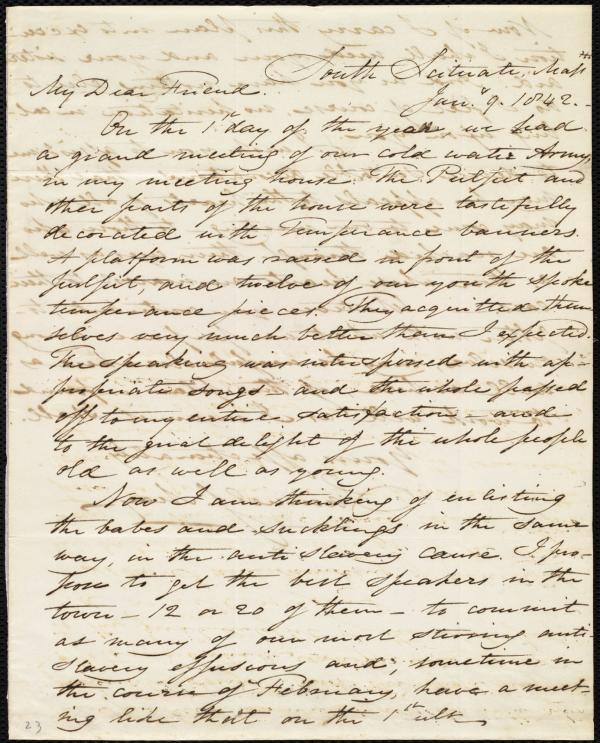 South Scituate, Mass
My Dear Friend. Jany 9. 1842.
On the 1st day of the year we had
a grand meeting of our cold water Army
in my meeting house. The Pulpit and
other parts of the house were tastefully
decorated with Temperance banners.
A platform was raised in front of the
pulpit, and twelve of our youth spoke
temperance pieces. They acquitted them
selves very much better than I expected.
The speaking was interspersed with ap-
propriate songs - and the whole passed
off to my entire satisfaction - and
to the great delight of the whole people
old as well as young.
Now I am thinking of enlisting
the babes and sucklings in the same
way, in the anti slavery cause. I pro-
pose to get the best speakers in the
town - 12 or 20 of them - to commit
as many of our most stirring anti-
slavery effusions and, sometime in
the course of February, have a meet-
ing like that on the 1st ult.
23